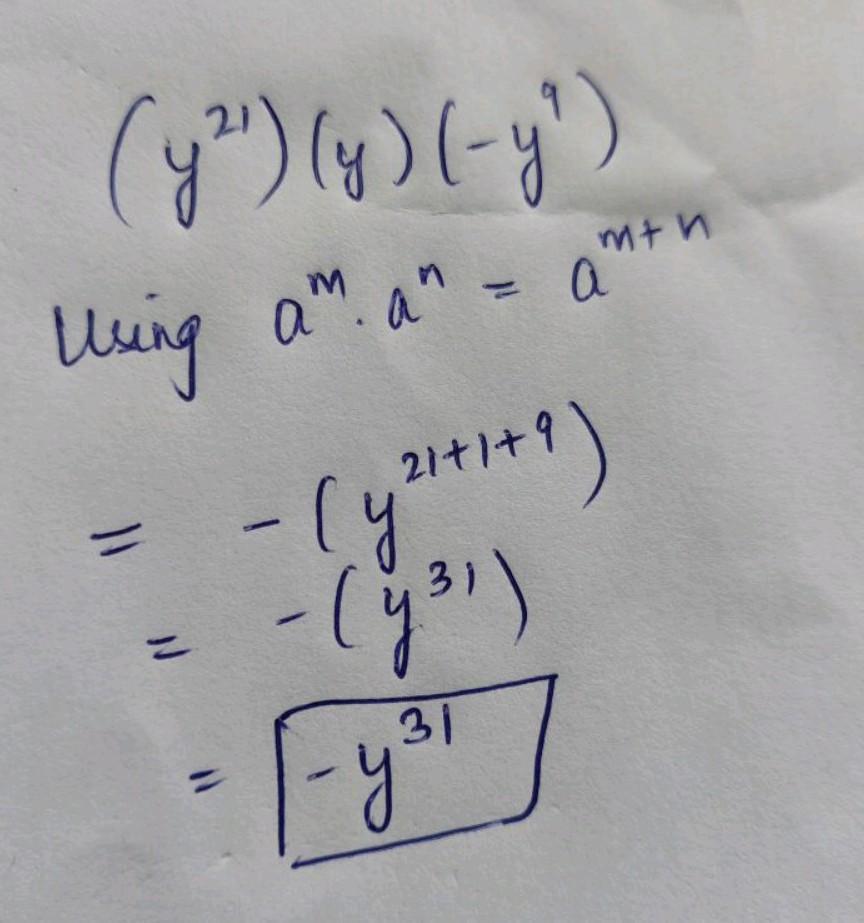 (y²¹)(y)(-y⁹)
Using aᵐ. aⁿ = aᵐ⁺ⁿ
= -(y²¹⁺¹⁺⁹)
= -(y³¹)
= -y³¹